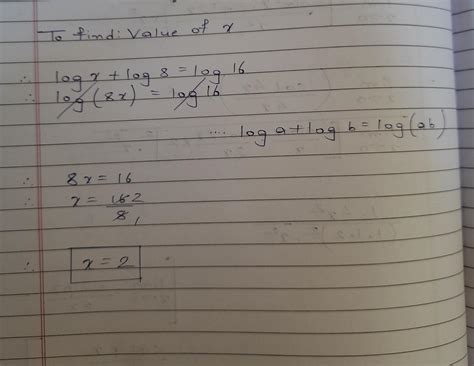 To find: Value of x
∴ log x + log 8 = log 16
∴ log (8x) = log 16
.... log a + log b = log (ab)
∴ 8x = 16
∴ x = 16 2
8 1
∴ x = 2